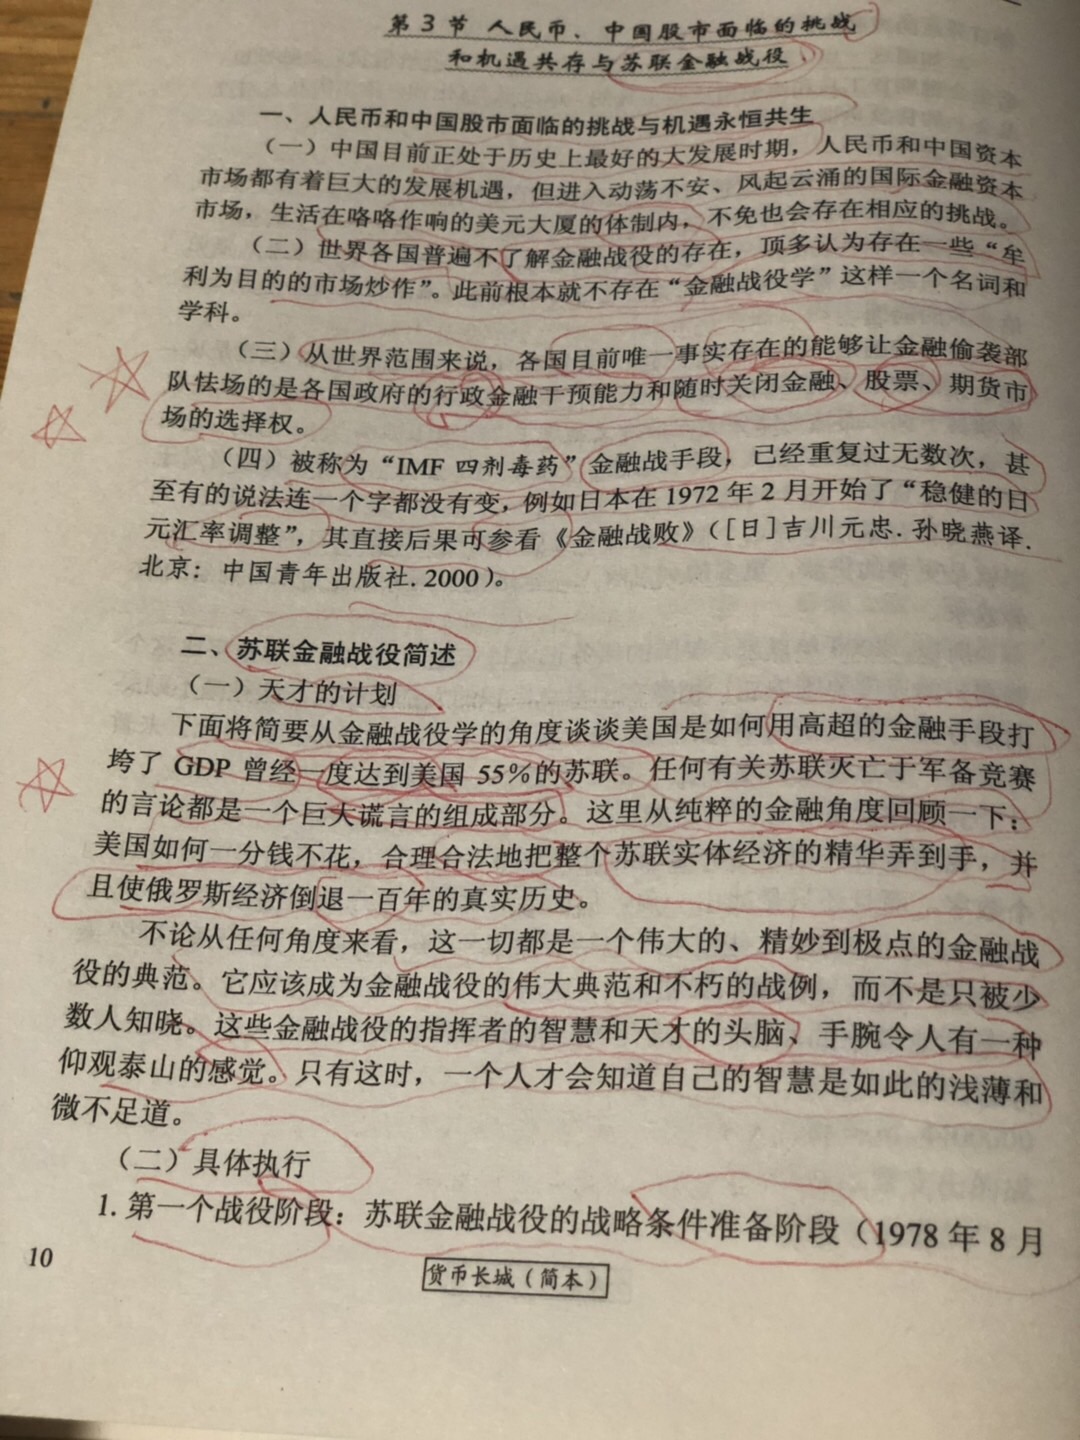 第3节 人民币、中国股市面临的挑战
和机遇共存与苏联金融战役
一、人民币和中国股市面临的挑战与机遇永恒共生
（一）中国目前正处于历史上最好的大发展时期，人民币和中国资本
市场都有着巨大的发展机遇，但进入动荡不安、风起云涌的国际金融资本
市场，生活在咯咯作响的美元大厦的体制内，不免也会存在相应的挑战。
（二）世界各国普遍不了解金融战役的存在，顶多认为存在一些“牟
利为目的的市场炒作”。此前根本就不存在“金融战役学”这样一个名词和
学科。
（三）从世界范围来说，各国目前唯一事实存在的能够让金融偷袭部
队怯场的是各国政府的行政金融干预能力和随时关闭金融、股票、期货市
场的选择权。
（四）被称为“IMF 四剂毒药”金融战手段，已经重复过无数次，甚
至有的说法连一个字都没有变，例如日本在1972年2月开始了“稳健的日
元汇率调整”，其直接后果可参看《金融战败》（[日]吉川元忠.孙晓燕译.
北京：中国青年出版社.2000）。
二、苏联金融战役简述
（一）天才的计划
下面将简要从金融战役学的角度谈谈美国是如何用高超的金融手段打
垮了 GDP 曾经一度达到美国 55%的苏联。任何有关苏联灭亡于军备竞赛
的言论都是一个巨大谎言的组成部分。这里从纯粹的金融角度回顾一下：
美国如何一分钱不花，合理合法地把整个苏联实体经济的精华弄到手，并
且使俄罗斯经济倒退一百年的真实历史。
不论从任何角度来看，这一切都是一个伟大的、精妙到极点的金融战
役的典范。它应该成为金融战役的伟大典范和不朽的战例，而不是只被少
数人知晓。这些金融战役的指挥者的智慧和天才的头脑、手腕令人有一种
仰观泰山的感觉。只有这时，一个人才会知道自己的智慧是如此的浅薄和
微不足道。
（二）具体执行
1. 第一个战役阶段：苏联金融战役的战略条件准备阶段（1978年8月
10
货币长城（简本）